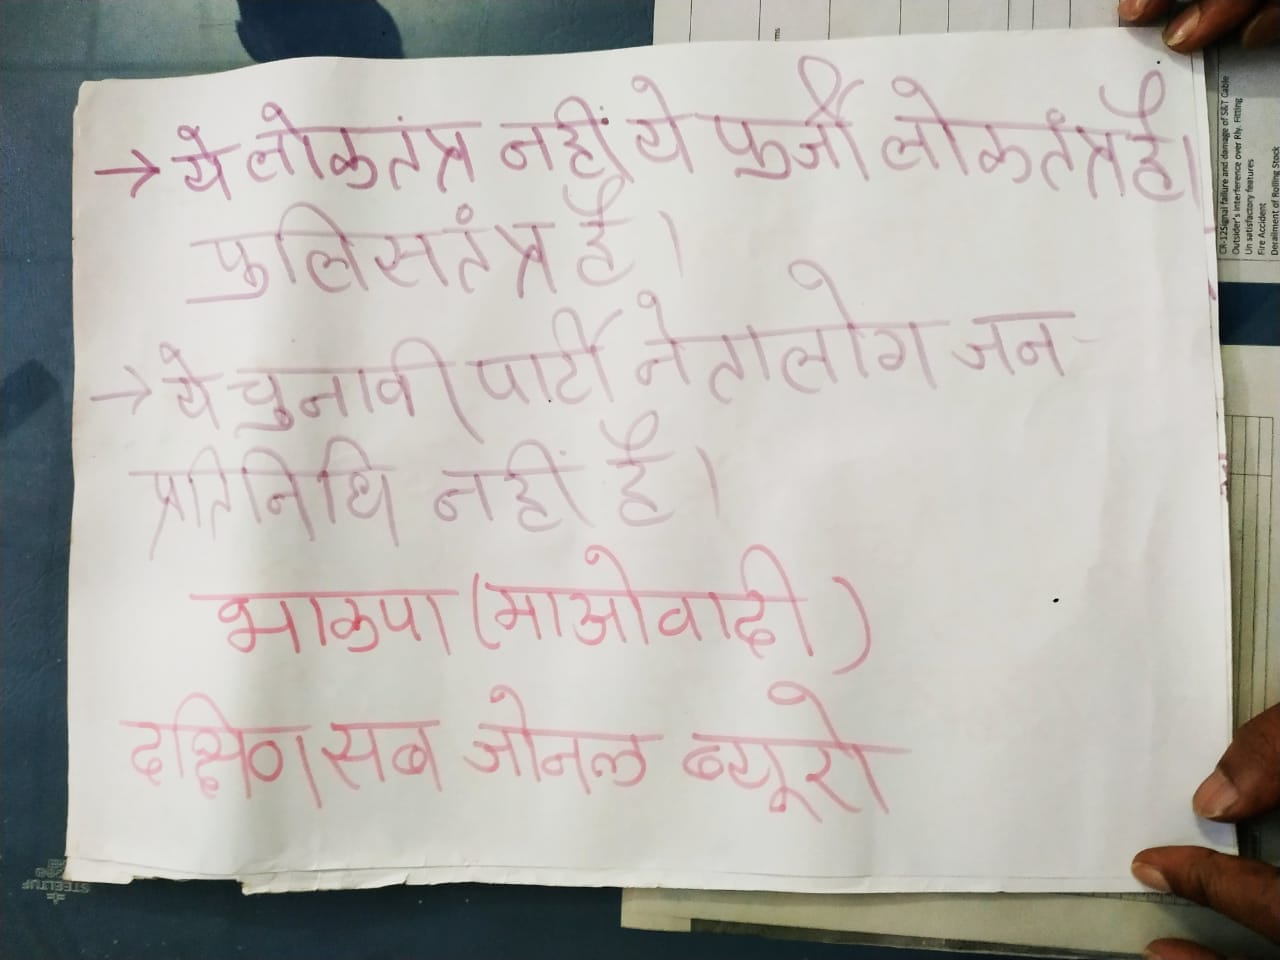 → ये लोकतंत्र नहीं ये फुर्जी लोकतंत्र है।
पुलिसतंत्र है।
→ ये चुनावी पार्टी नेतालोग जन-
प्रतिनिधि नहीं है।
भाकपा (माओवादी)
दक्षिण सब जोनल ब्यूरो
CR-12Signal failure and damage of S&T Cable
Outsider's interference over Rly. Fitting
Un satisfactory features
Fire Accident
Derailment of Rolling Stock
STEELTUF